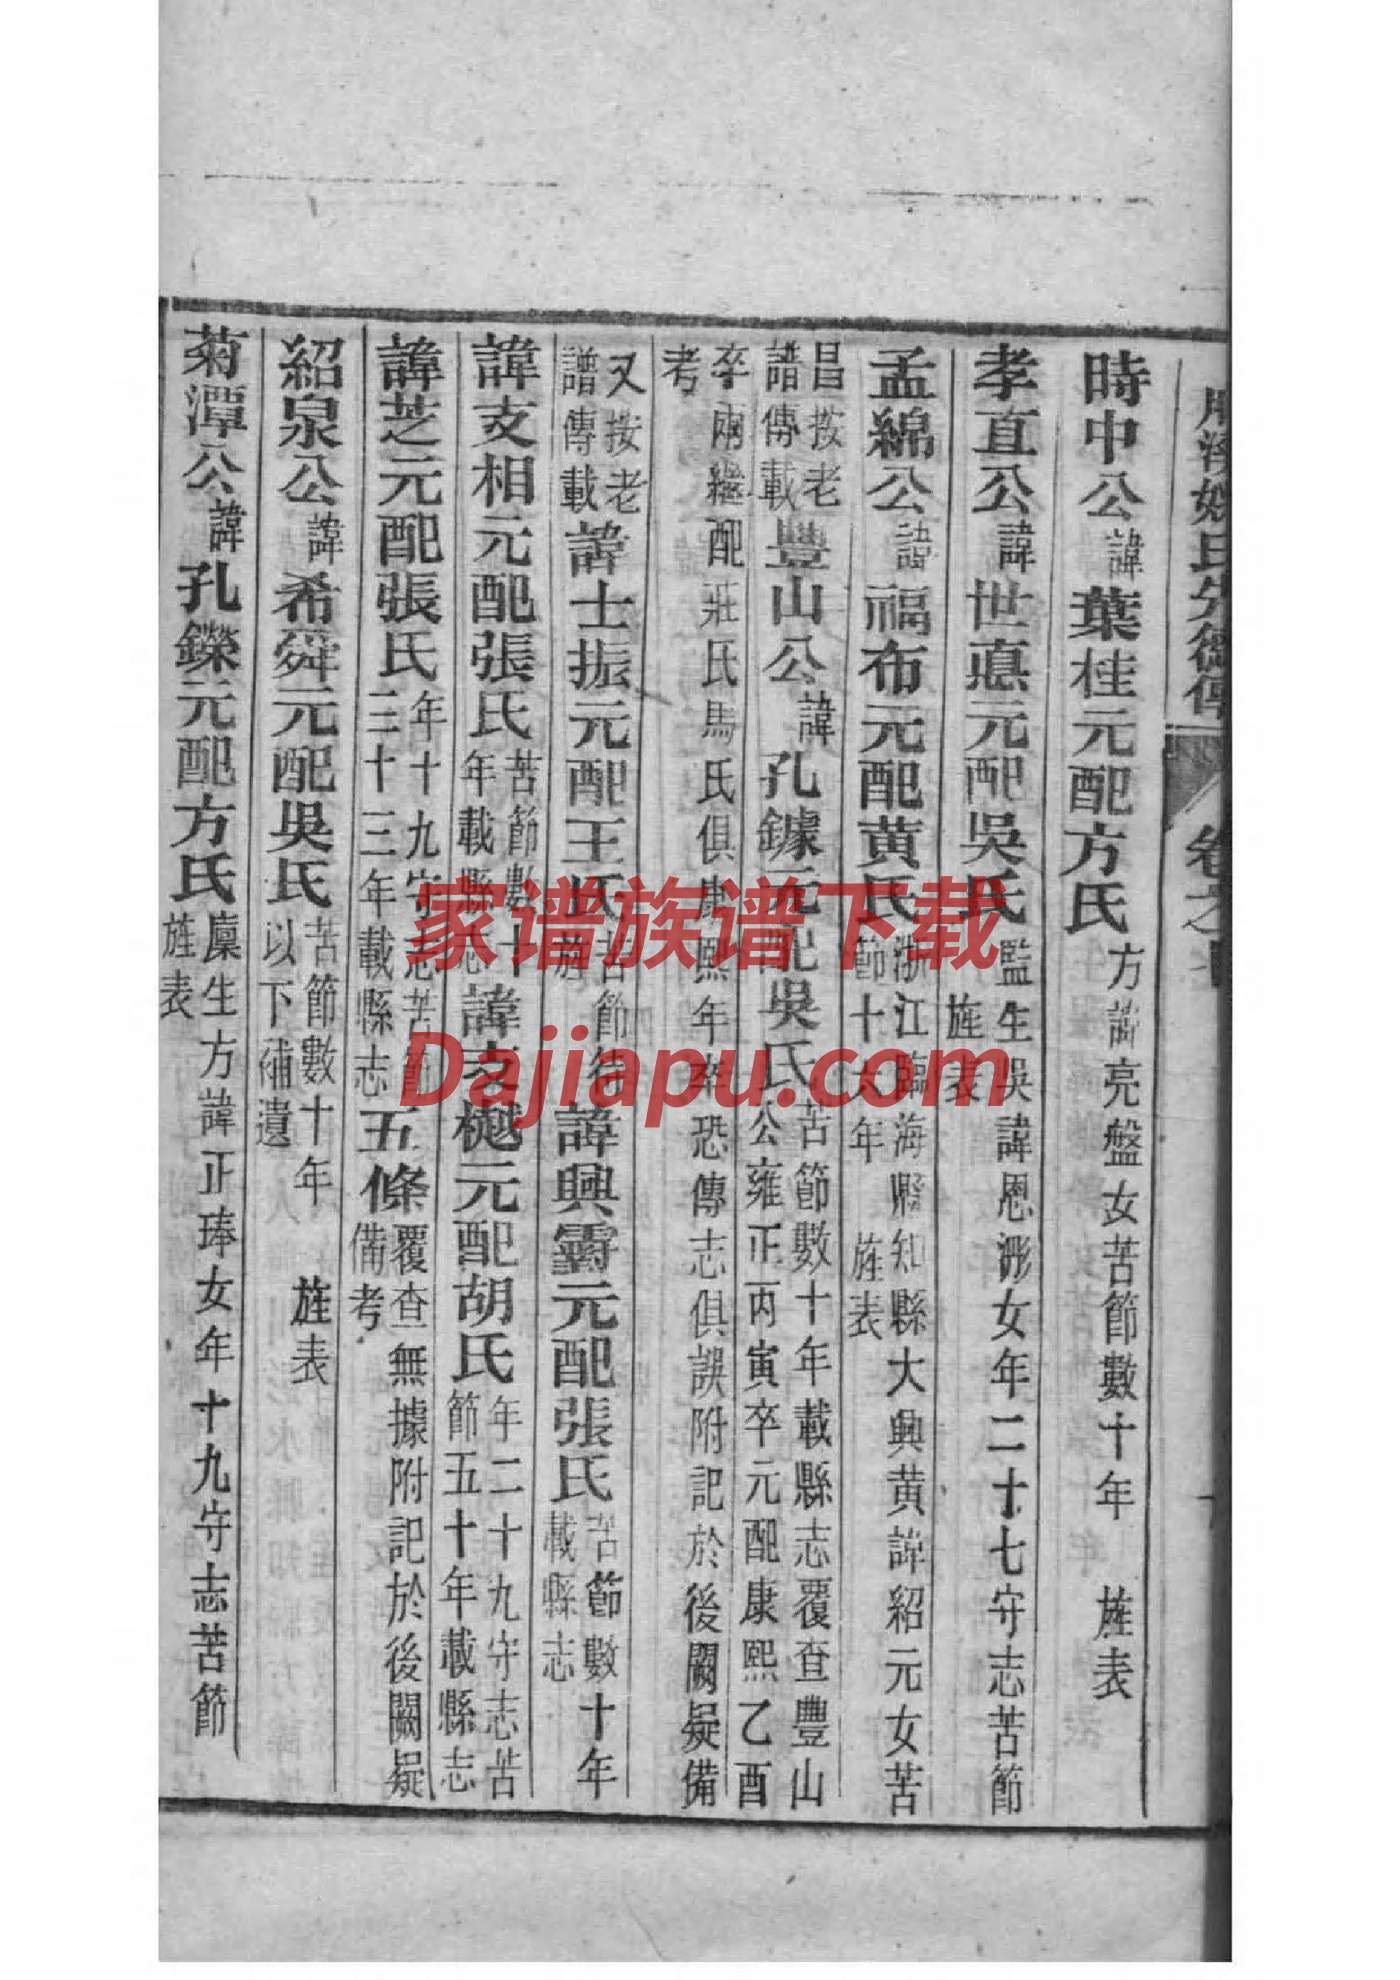 氏先德傳
卷之
時中公諱葉桂元配方氏方諱亮盤女苦節數十年 旌表
孝直公諱世憲元配吳氏監生吳諱恩濊女年二十七守志苦節
旌表
孟綿公諱福布元配黄氏浙江臨海縣知縣大興黄諱紹元女苦
節十六年 旌表
昌按老
譜傳載豐山公諱孔鐻元配吳氏苦節數十年載縣志覆查豐山
公雍正丙寅卒元配康熙乙酉
卒兩繼配莊氏馬氏俱康熙年卒恐傳志俱誤附記於後闕疑備
考
又按老
譜傳載諱士振元配王氏苦節待
旌
諱興霨元配張氏苦節數十年
載縣志
諱支相元配張氏苦節數十
年載縣志
諱支樾元配胡氏年二十九守志苦
節五十年載縣志
諱芝元配張氏年十九守志苦節
三十三年載縣志
五條覆查無據附記於後闕疑
備考
紹泉公諱希舜元配吳氏苦節數十年 旌表
以下補遺
菊潭公諱孔鑅元配方氏廩生方諱正琫女年十九守志苦節
旌表
家谱族谱下载
Dajiapu.com